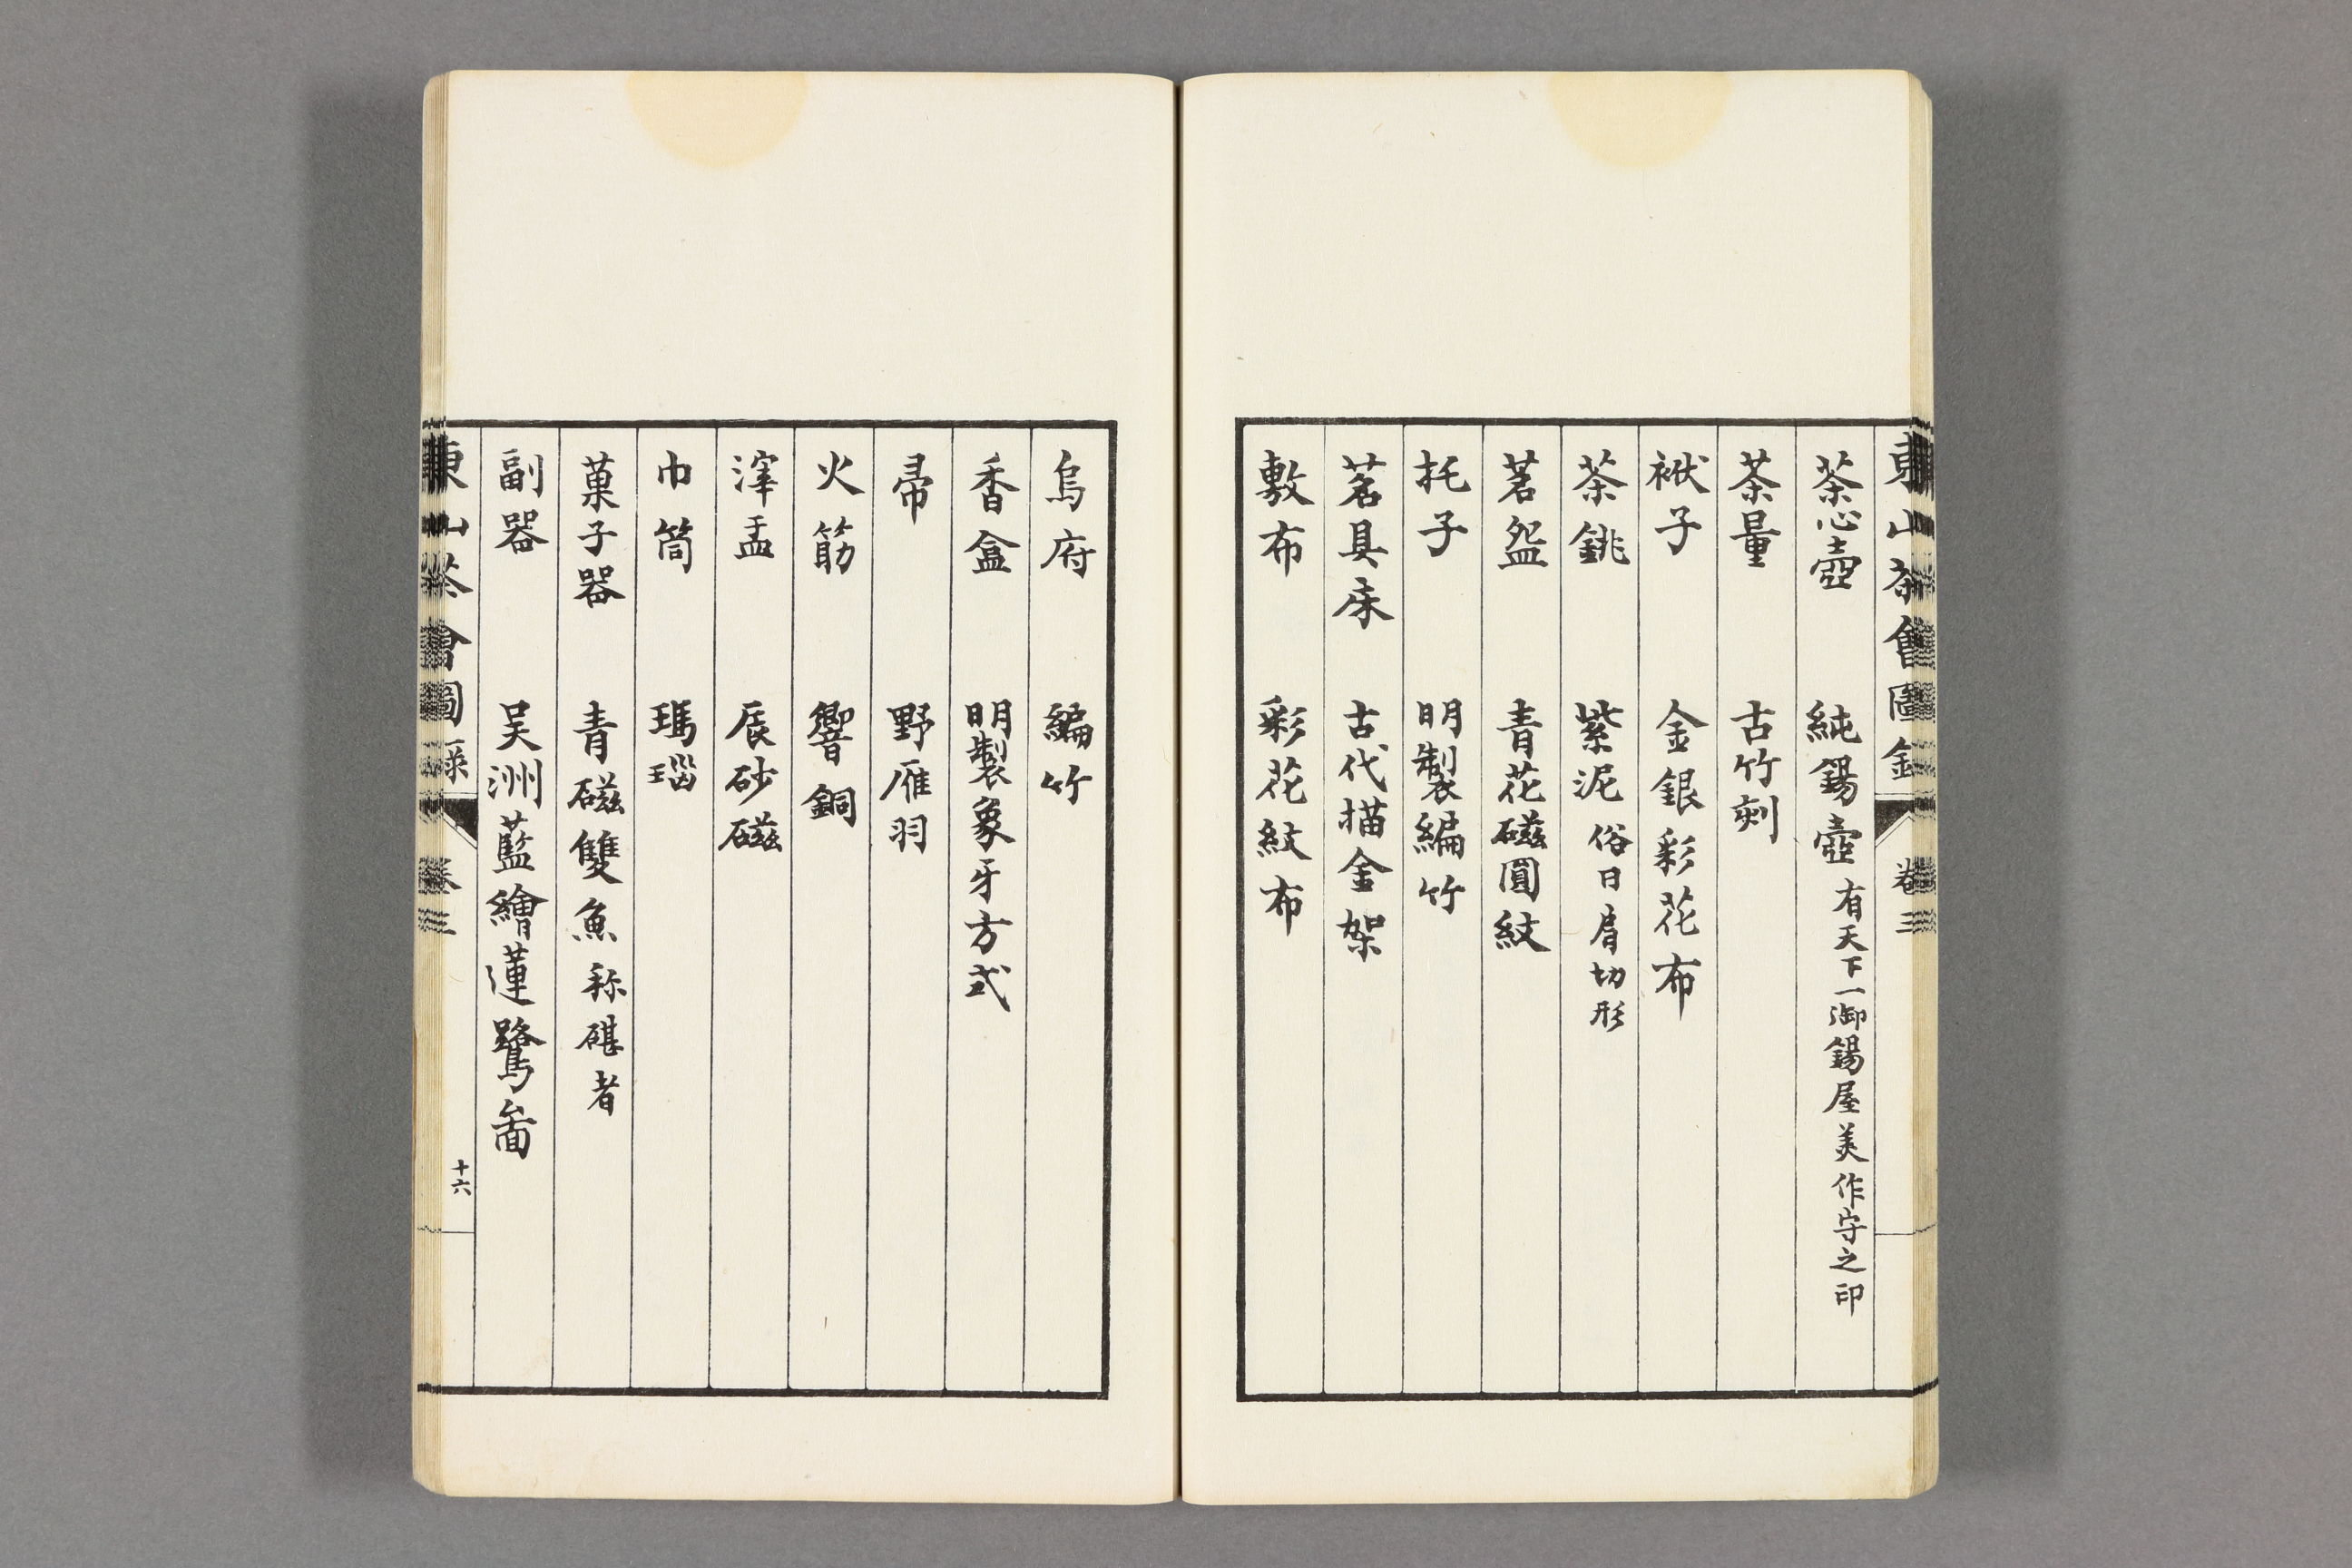 東山茶會圖錄 卷三
茶心壺 純錫壺 有天下一御錫屋美作守之印
茶量 古竹刻
袱子 金銀彩花布
茶銚 紫泥 俗曰肩切形
茗盌 青花磁圓紋
托子 明製編竹
茗具床 古代描金架
敷布 彩花紋布
烏府 編竹
香盒 明製象牙方式
帚 野雁羽
火筯 響銅
滓盂 辰砂磁
巾筒 瑪瑙
菓子器 青磁雙魚 称碪者
副器 吴洲藍繪蓮鷺啚
東山茶會圖錄 卷三 十六